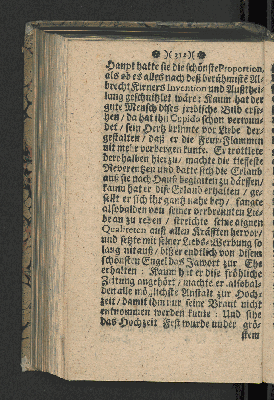 )( 312 )(
Haupt hatte sie die schönste Proportion,
als ob es alles nach deß berühmtste Al-
brecht Türers Invention und Außthei-
lung geschnitzlet wäre: Kaum hat der
gute Mensch dises irrdische Bild ersse-
hen, da hat ihn Cupido schon verwun-
det, sein Hertz brinnete vor Liebe der-
gestalten, daß er die Feur-Flammen
nit mehr verbergen kunte. Er trottlete
derhalben hierzu, machte die tieffeste
Reverentzen und batte sich die Erlaub-
nuß sie nach Hauß begleiten zu därffen,
kaum hat er dise Erlaub erhalten, ge-
sellt er sich ihr gantz nahe bey, fangte
alsobalden von seiner verbrennten Lie-
be an zu reden, strichte seine eignen
Qualiteten auß allen Kräfften hervor,
und setzte mit seiner Liebs-Werbung so
lang nit auß, biß er endlich von disem
schönsten Engel das Jawort zur Ehe
erhalten: Kaum hat er dise fröhliche
Zeitung angehört, machte er alsobal-
den alle möglichste Anstalt zur Hoch-
zeit, damit ihm nur seine Braut nicht
entnommen werden kunte: Und sihe
das Hochzeit Fest wurde unter grö-
stem